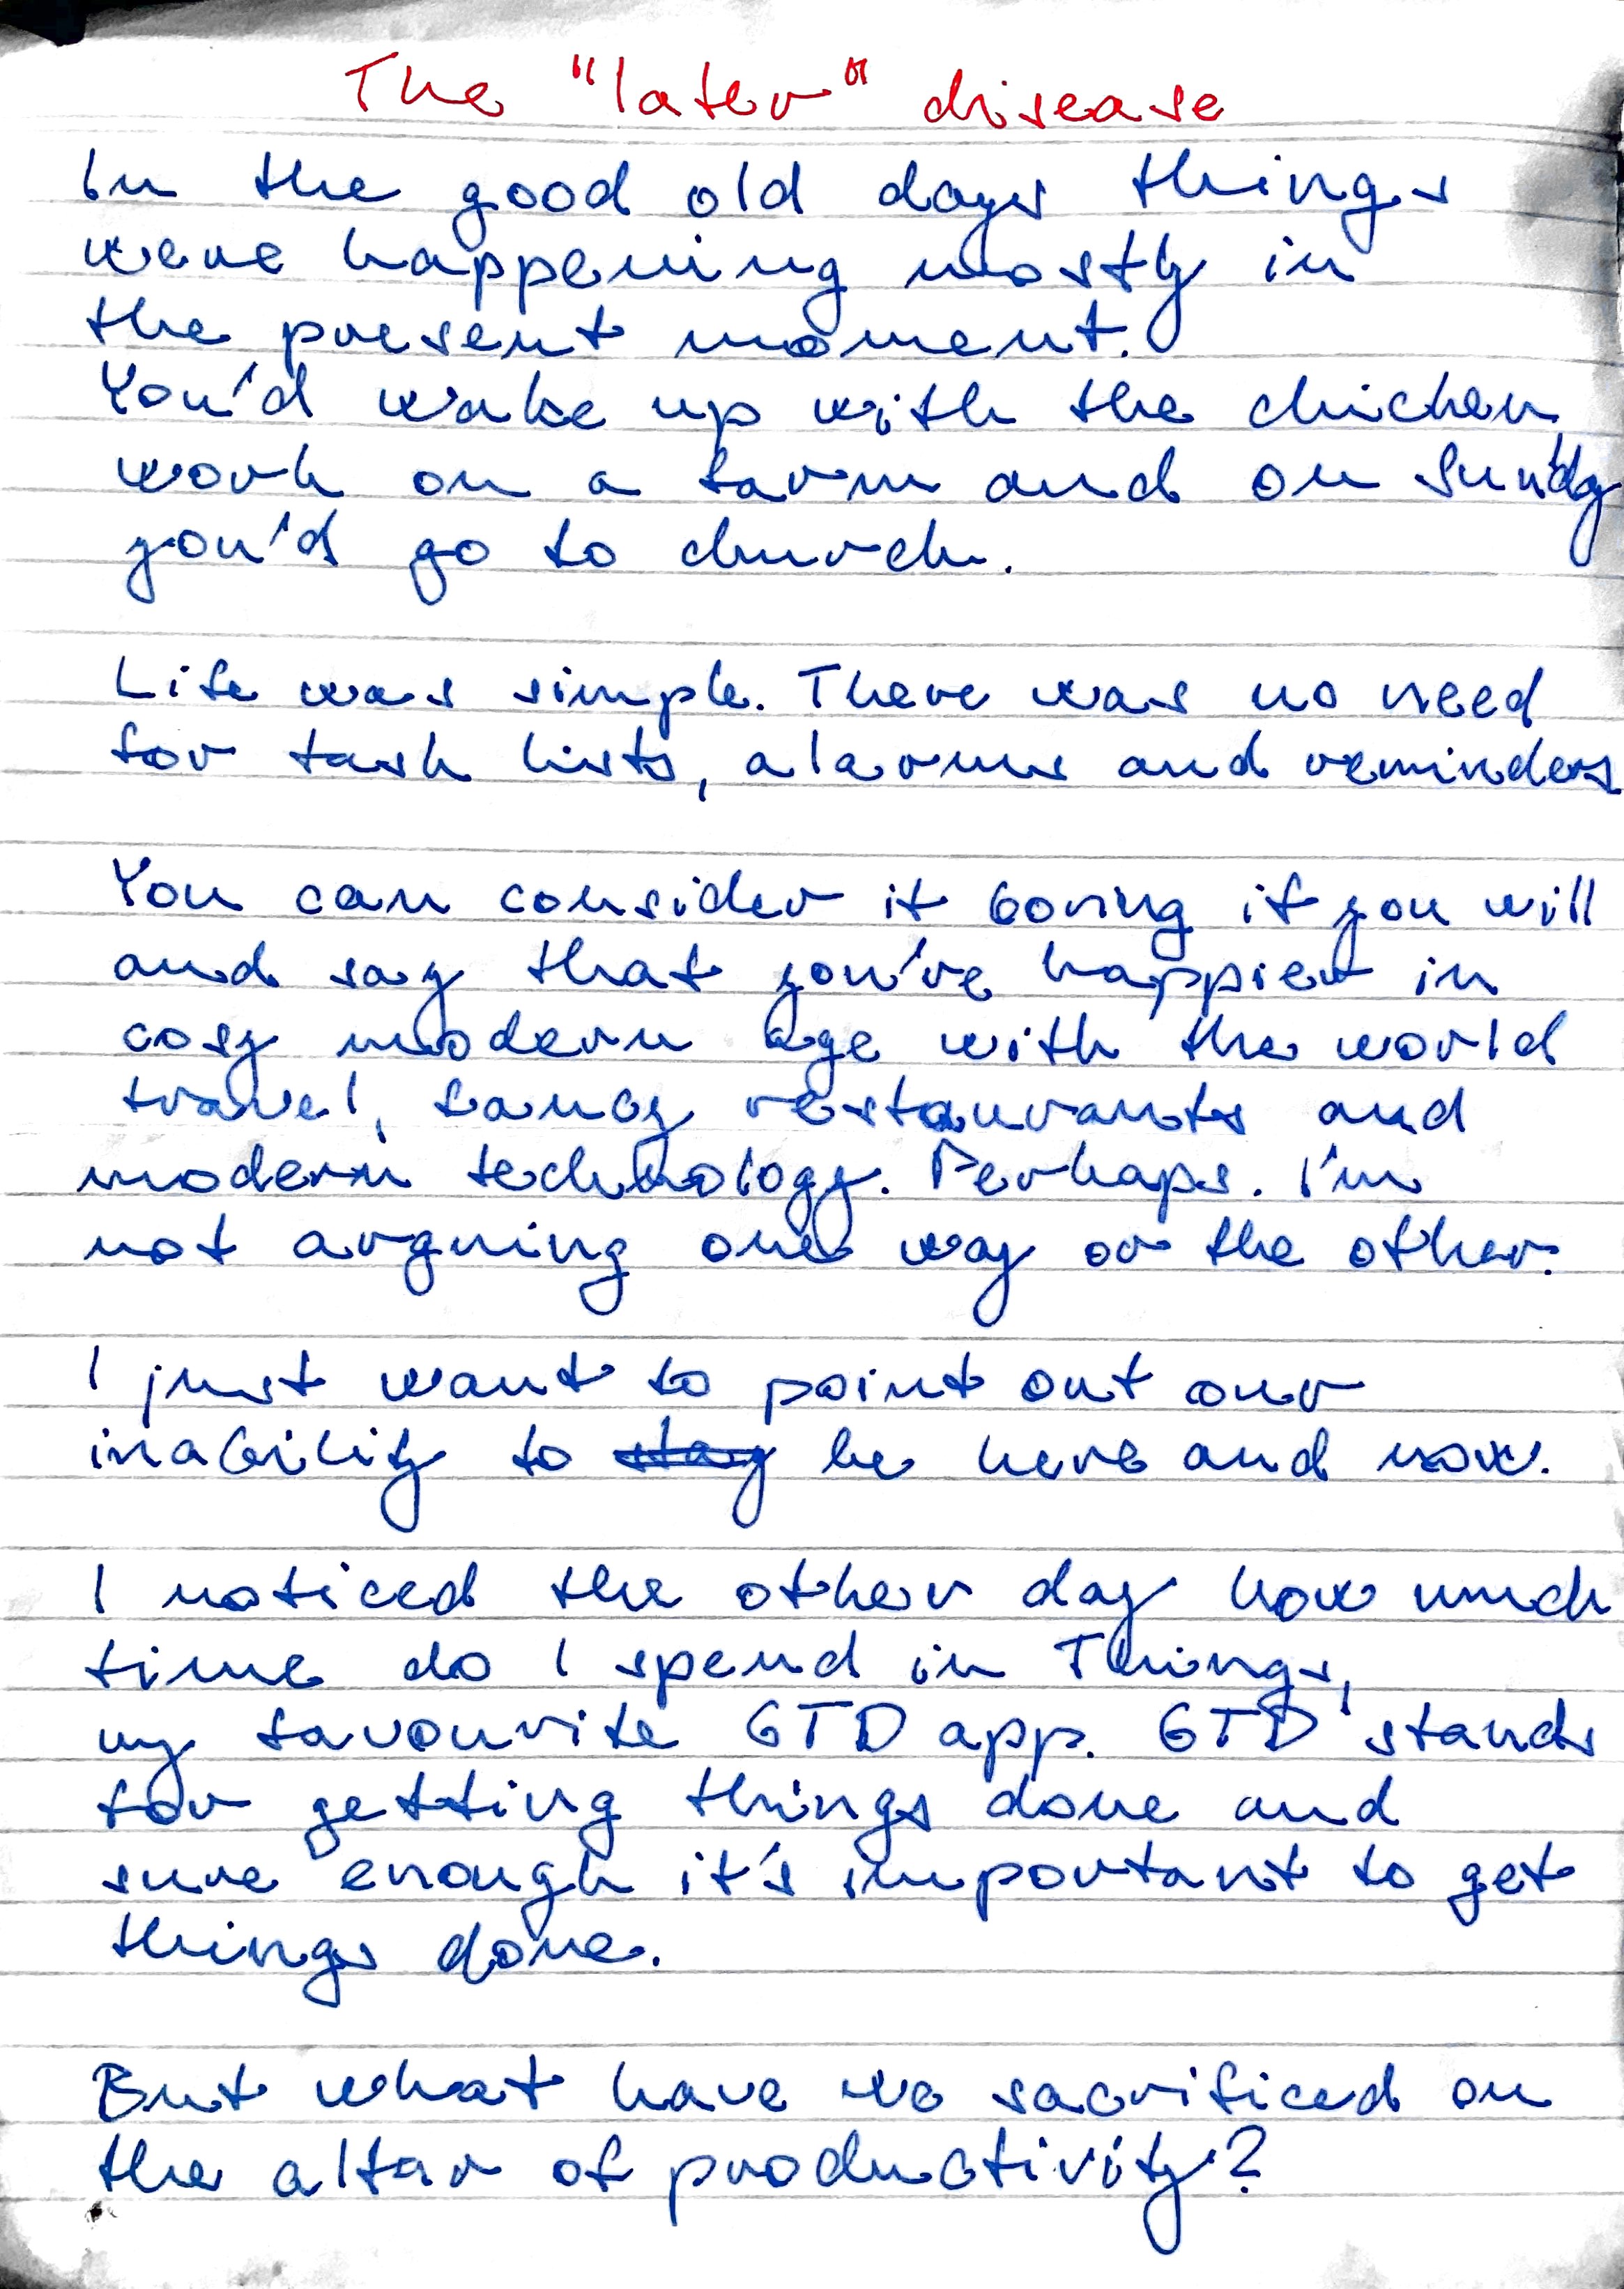 The "later" disease
In the good old days things
were happening mostly in
the present moment.
You'd wake up with the chicken,
work on a farm and on Sun'dy
you'd go to church.
Life was simple. There was no need
for task lists, alarms and reminders
You can consider it boring if you will
and say that you're happier in
cosy modern age with the world
travel, fancy restaurants and
modern technology. Perhaps. I'm
not arguing one way or the other.
I just want to point out our
inability to stay be here and now.
I noticed the other day how much
time do I spend in Things,
my favourite GTD app. GTD stands
for getting things done and
sure enough it's important to get
things done.
But what have we sacrificed on
the altar of productivity?